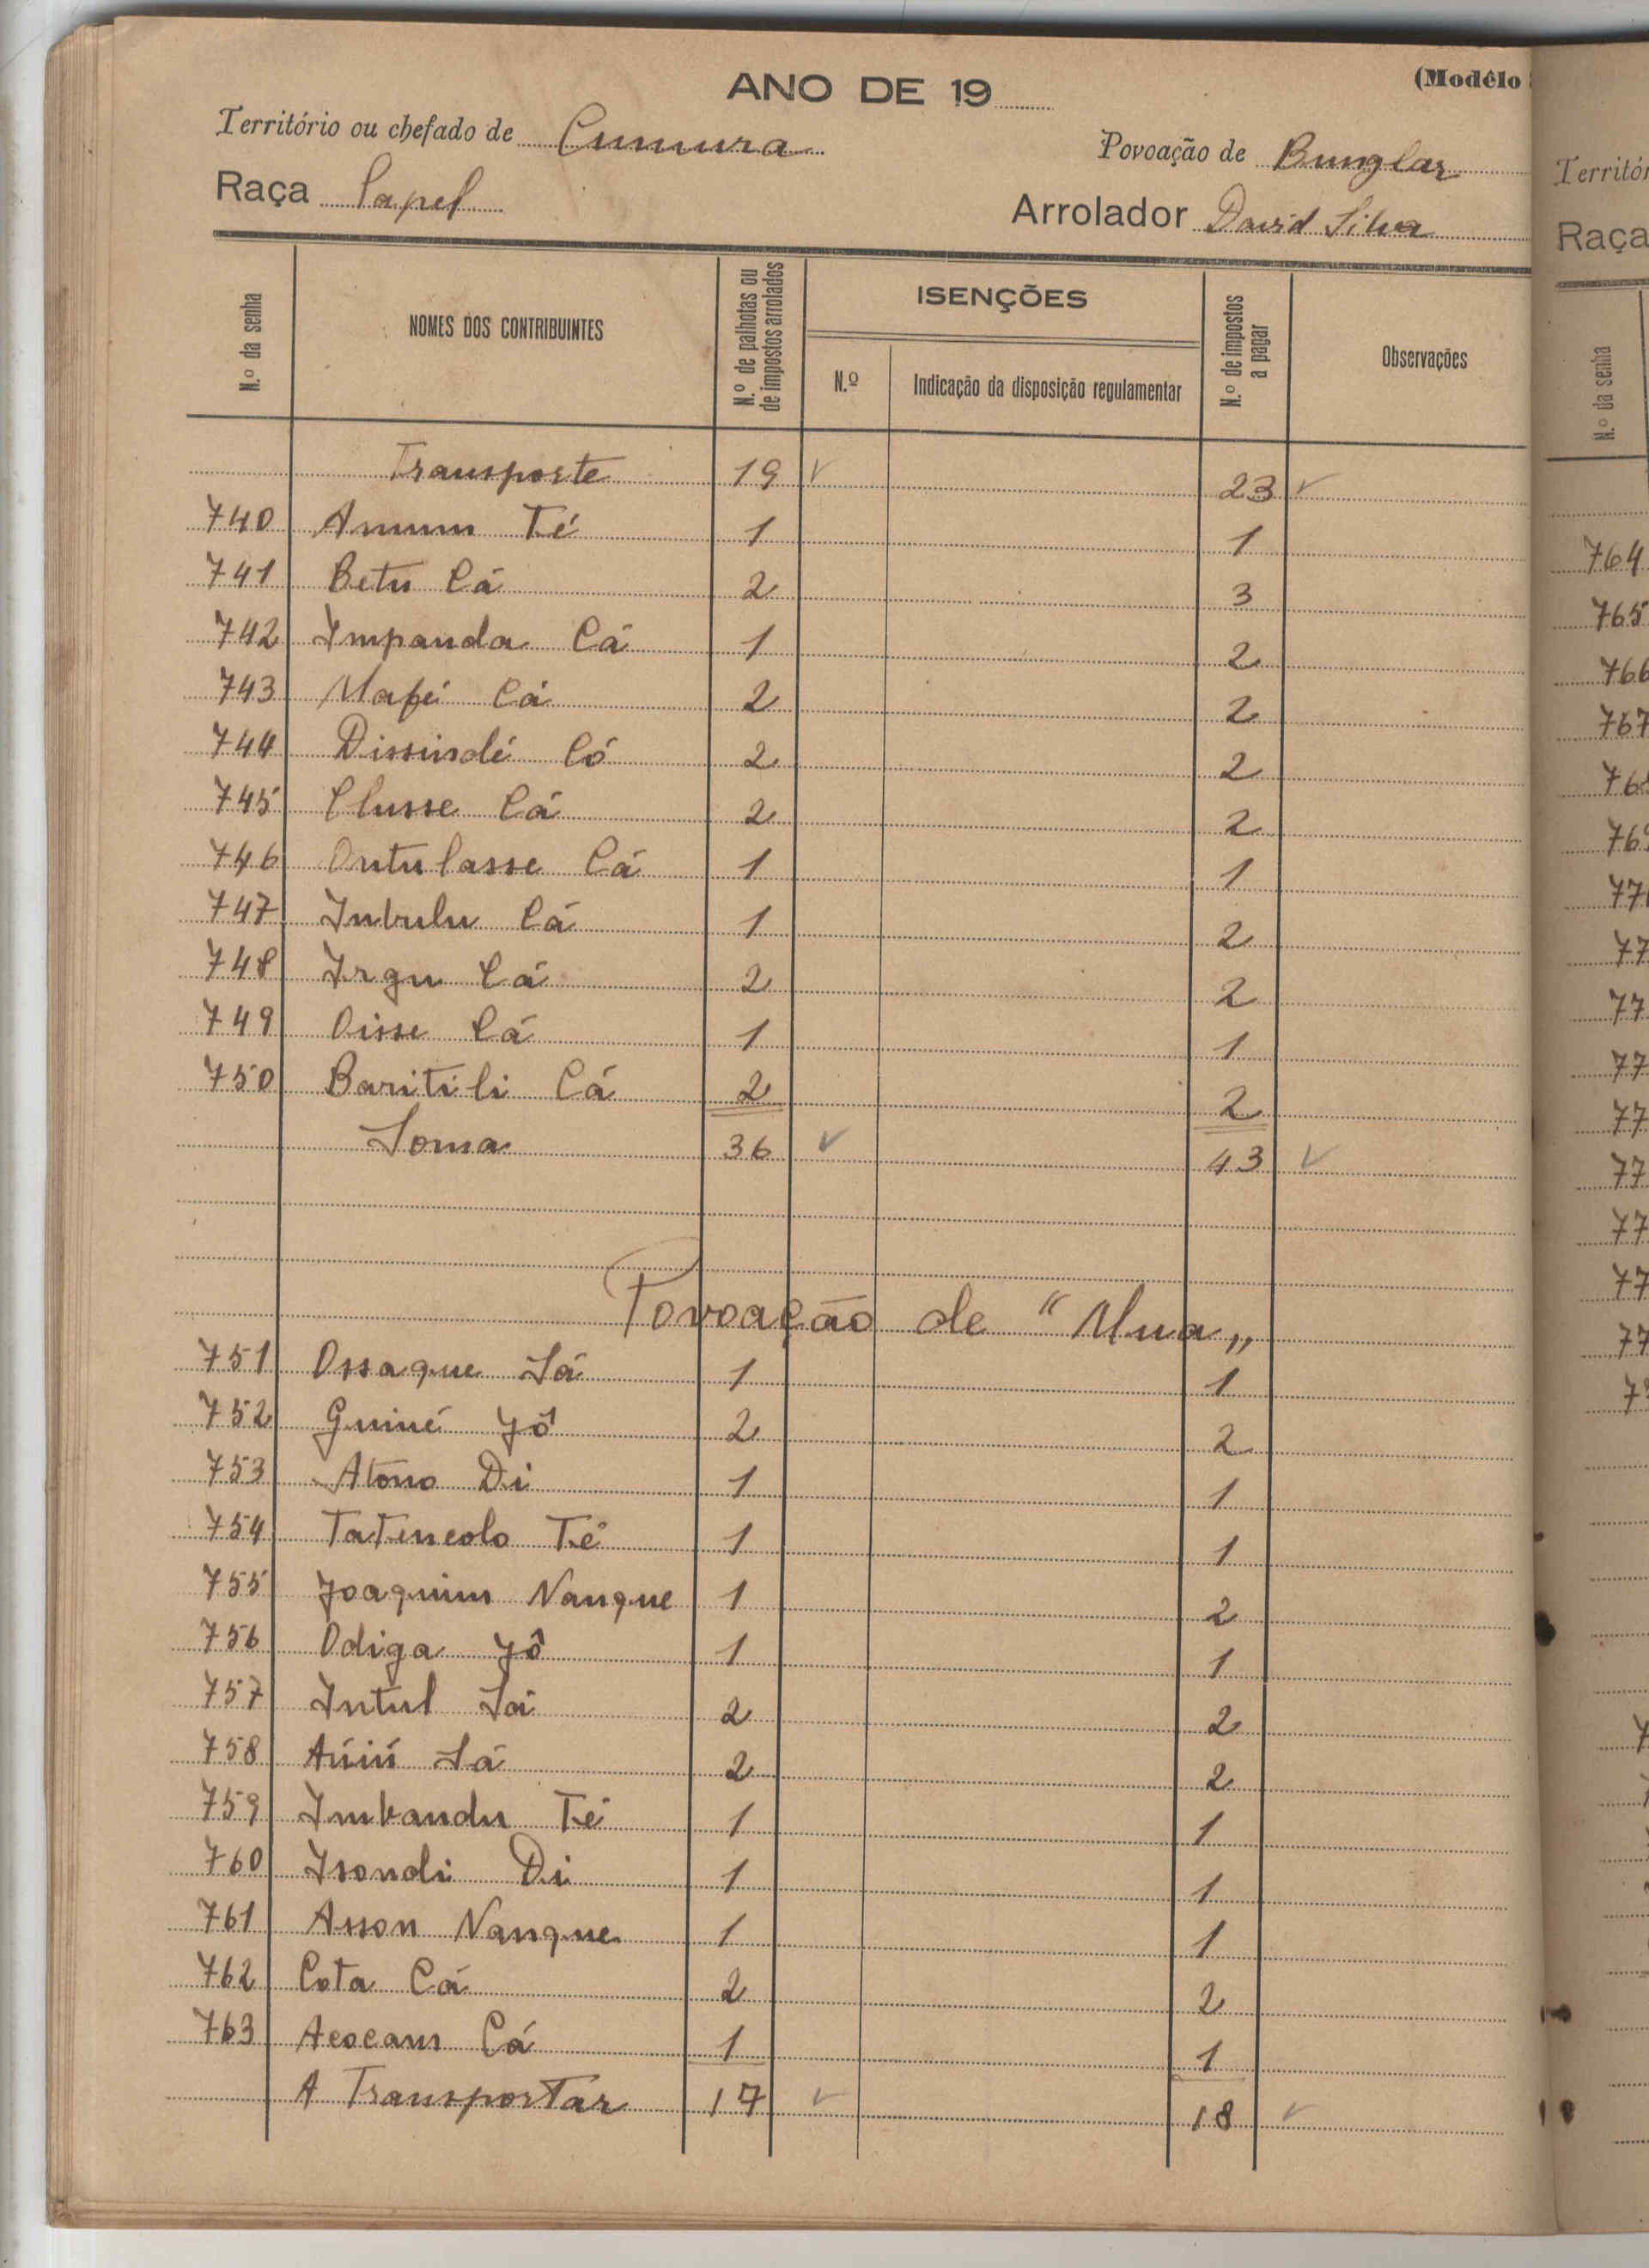 ANO DE 19
(Modêlo
Território ou chefado de Cumura
Povoação de Bunglar
Raça Papel
Arrolador David Silva
N.º da senha
NOMES DOS CONTRIBUINTES
N.º de palhotas ou de impostos arrolados
ISENÇÕES
N.º
Indicação da disposição regulamentar
N.º de impostos a pagar
Observações
Transporte 19 23
740 Anum Té 1 1
741 Betu Cá 2 3
742 Impanda Cá 1 2
743 Mafé Cá 2 2
744 Dissindé Có 2 2
745 Clusse Cá 2 2
746 Ontulasse Cá 1 1
747 Inbulu Cá 1 2
748 Irgu Cá 2 2
749 Oisse Cá 1 1
750 Baritili Cá 2 2
Soma 36 43
Povoação de "Mua"
751 Ossaque Sá 1 1
752 Guiné Jó 2 2
753 Atono Di 1 1
754 Té 1 1
755 Joaquim Nanque 1 2
756 Odiga Jô 1 1
757 Intul Sá 2 2
758 Sá 2 2
759 Imbandu Té 1 1
760 Isondi Di 1 1
761 Asson Nanque 1 1
762 Cota Cá 2 2
763 Cá 1 1
A Transportar 17 18
Territó
Raça
N.º da senha
764
765
766
767